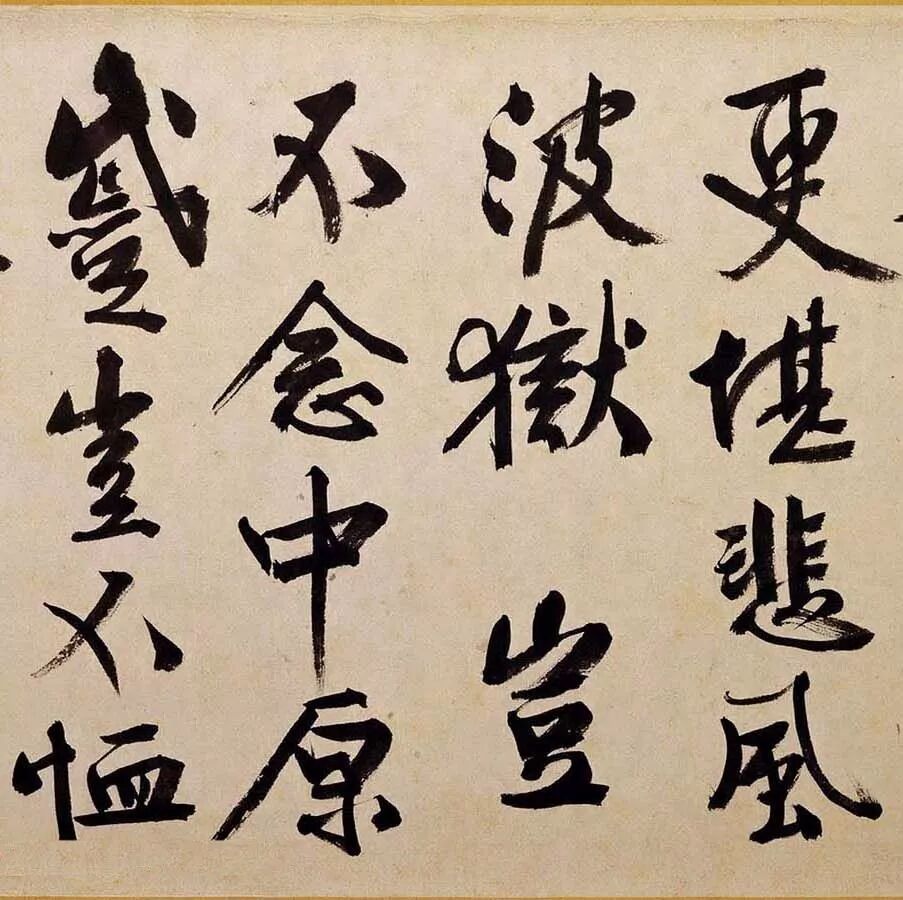 更堪悲風
波獄 豈
不念中原
蹙豈不恤